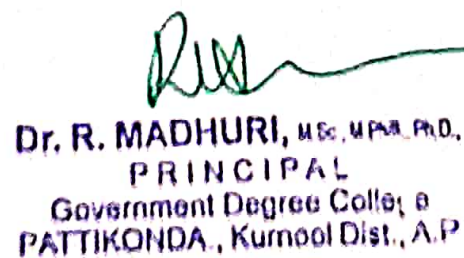 Dr. R. MADHURI, M.Sc., M.Phil., Ph.D.,
PRINCIPAL
Government Degree College
PATTIKONDA., Kurnool Dist., A.P